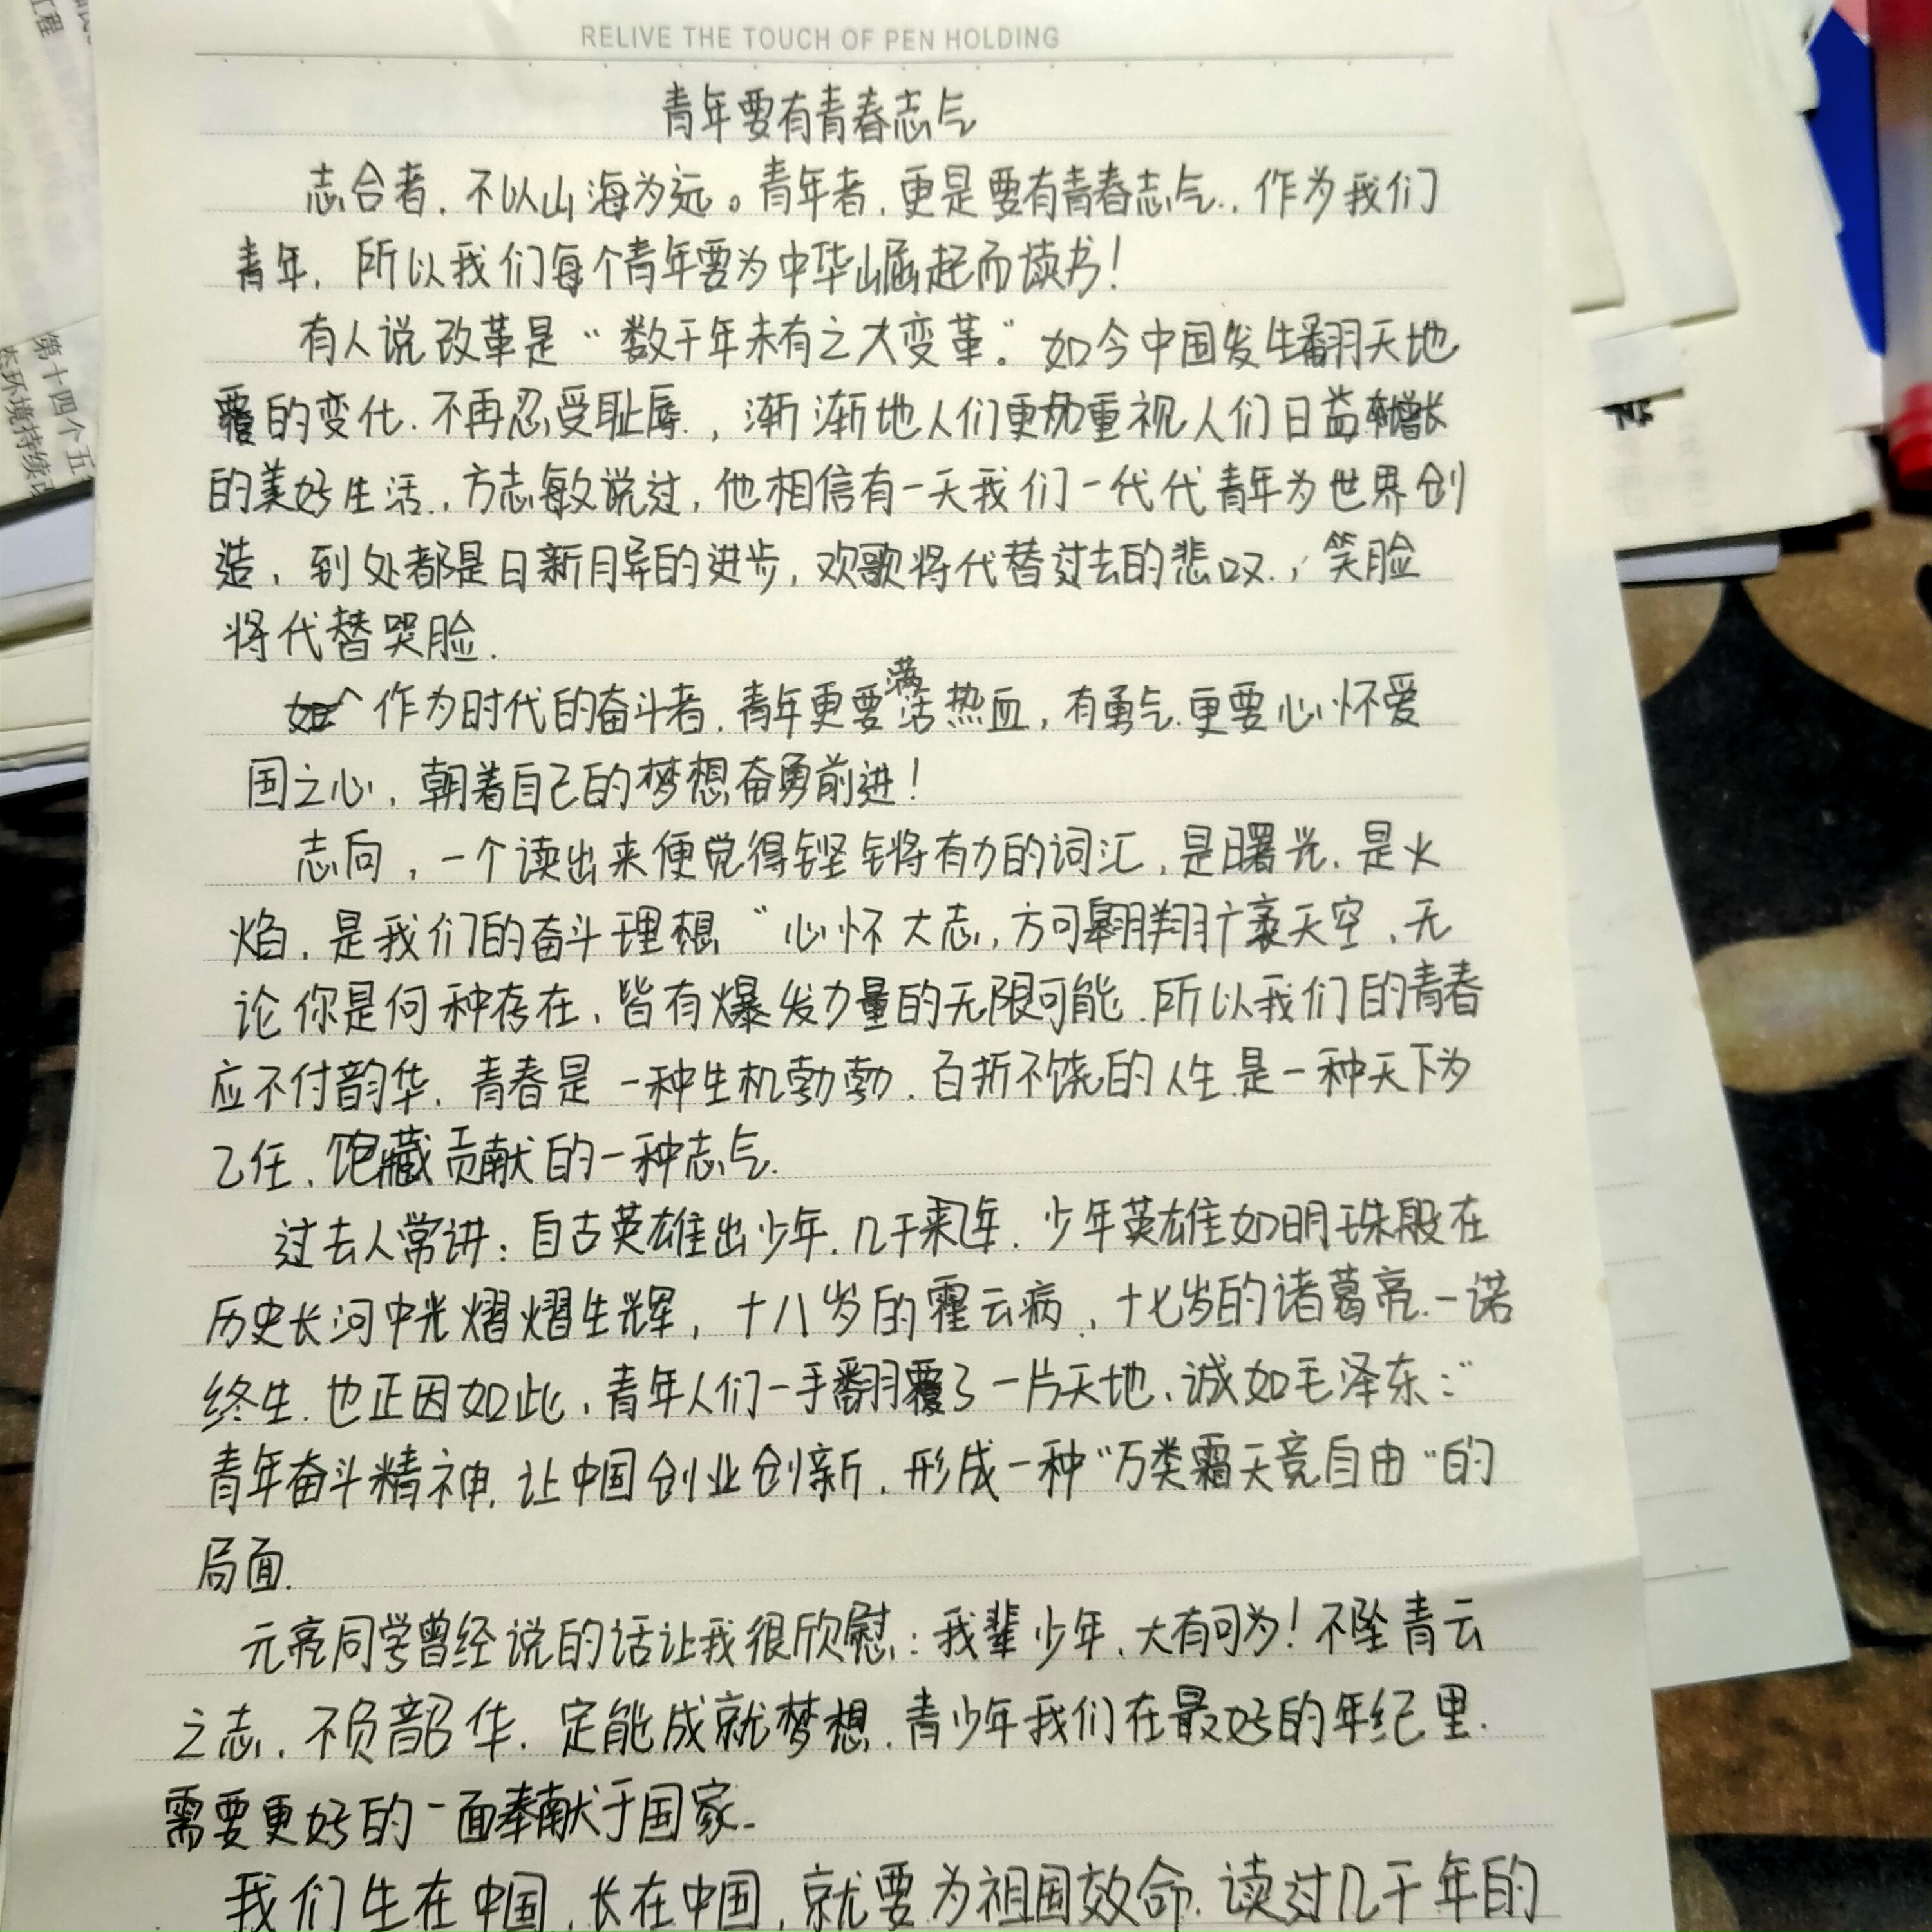 RELIVE THE TOUCH OF PEN HOLDING
青年要有青春志气
志合者,不以山海为远。青年者,更是要有青春志气.,作为我们
青年,所以我们每个青年要为中华崛起而读书!
有人说改革是“数千年未有之大变革”如今中国发生翻天地
覆的变化.不再忍受耻辱.,渐渐地人们更加重视人们日益增长
的美好生活.,方志敏说过,他相信有一天我们一代代青年为世界创
造,到处都是日新月异的进步,欢歌将代替过去的悲叹.,笑脸
将代替哭脸.
作为时代的奋斗者,青年更要满活热血,有勇气.更要心怀爱
国之心,朝着自己的梦想奋勇前进!
志向,一个读出来便觉得铿锵有力的词汇,是曙光.是火
焰,是我们的奋斗理想“心怀大志,方可翱翔广袤天空,无
论你是何种存在,皆有爆发力量的无限可能.所以我们的青春
应不付韵华.青春是一种生机勃勃.百折不饶的人生.是一种天下为
己任.饱藏贡献的一种志气.
过去人常讲:自古英雄出少年.几千来年.少年英雄如明珠般在
历史长河中光熠熠生辉,十八岁的霍云病.,十七岁的诸葛亮.一诺
终生.也正因如此,青年人们一手翻覆了一片天地,诚如毛泽东:“
青年奋斗精神.让中国创业创新.形成一种“万类霜天竞自由”的
局面.
元亮同学曾经说的话让我很欣慰:我辈少年,大有可为!不坠青云
之志,不负韶华.定能成就梦想.青少年我们在最好的年纪里.
需要更好的一面奉献于国家.
我们生在中国,长在中国,就要为祖国效命.读过几千年的
工程
第十四个五
态环境持续改